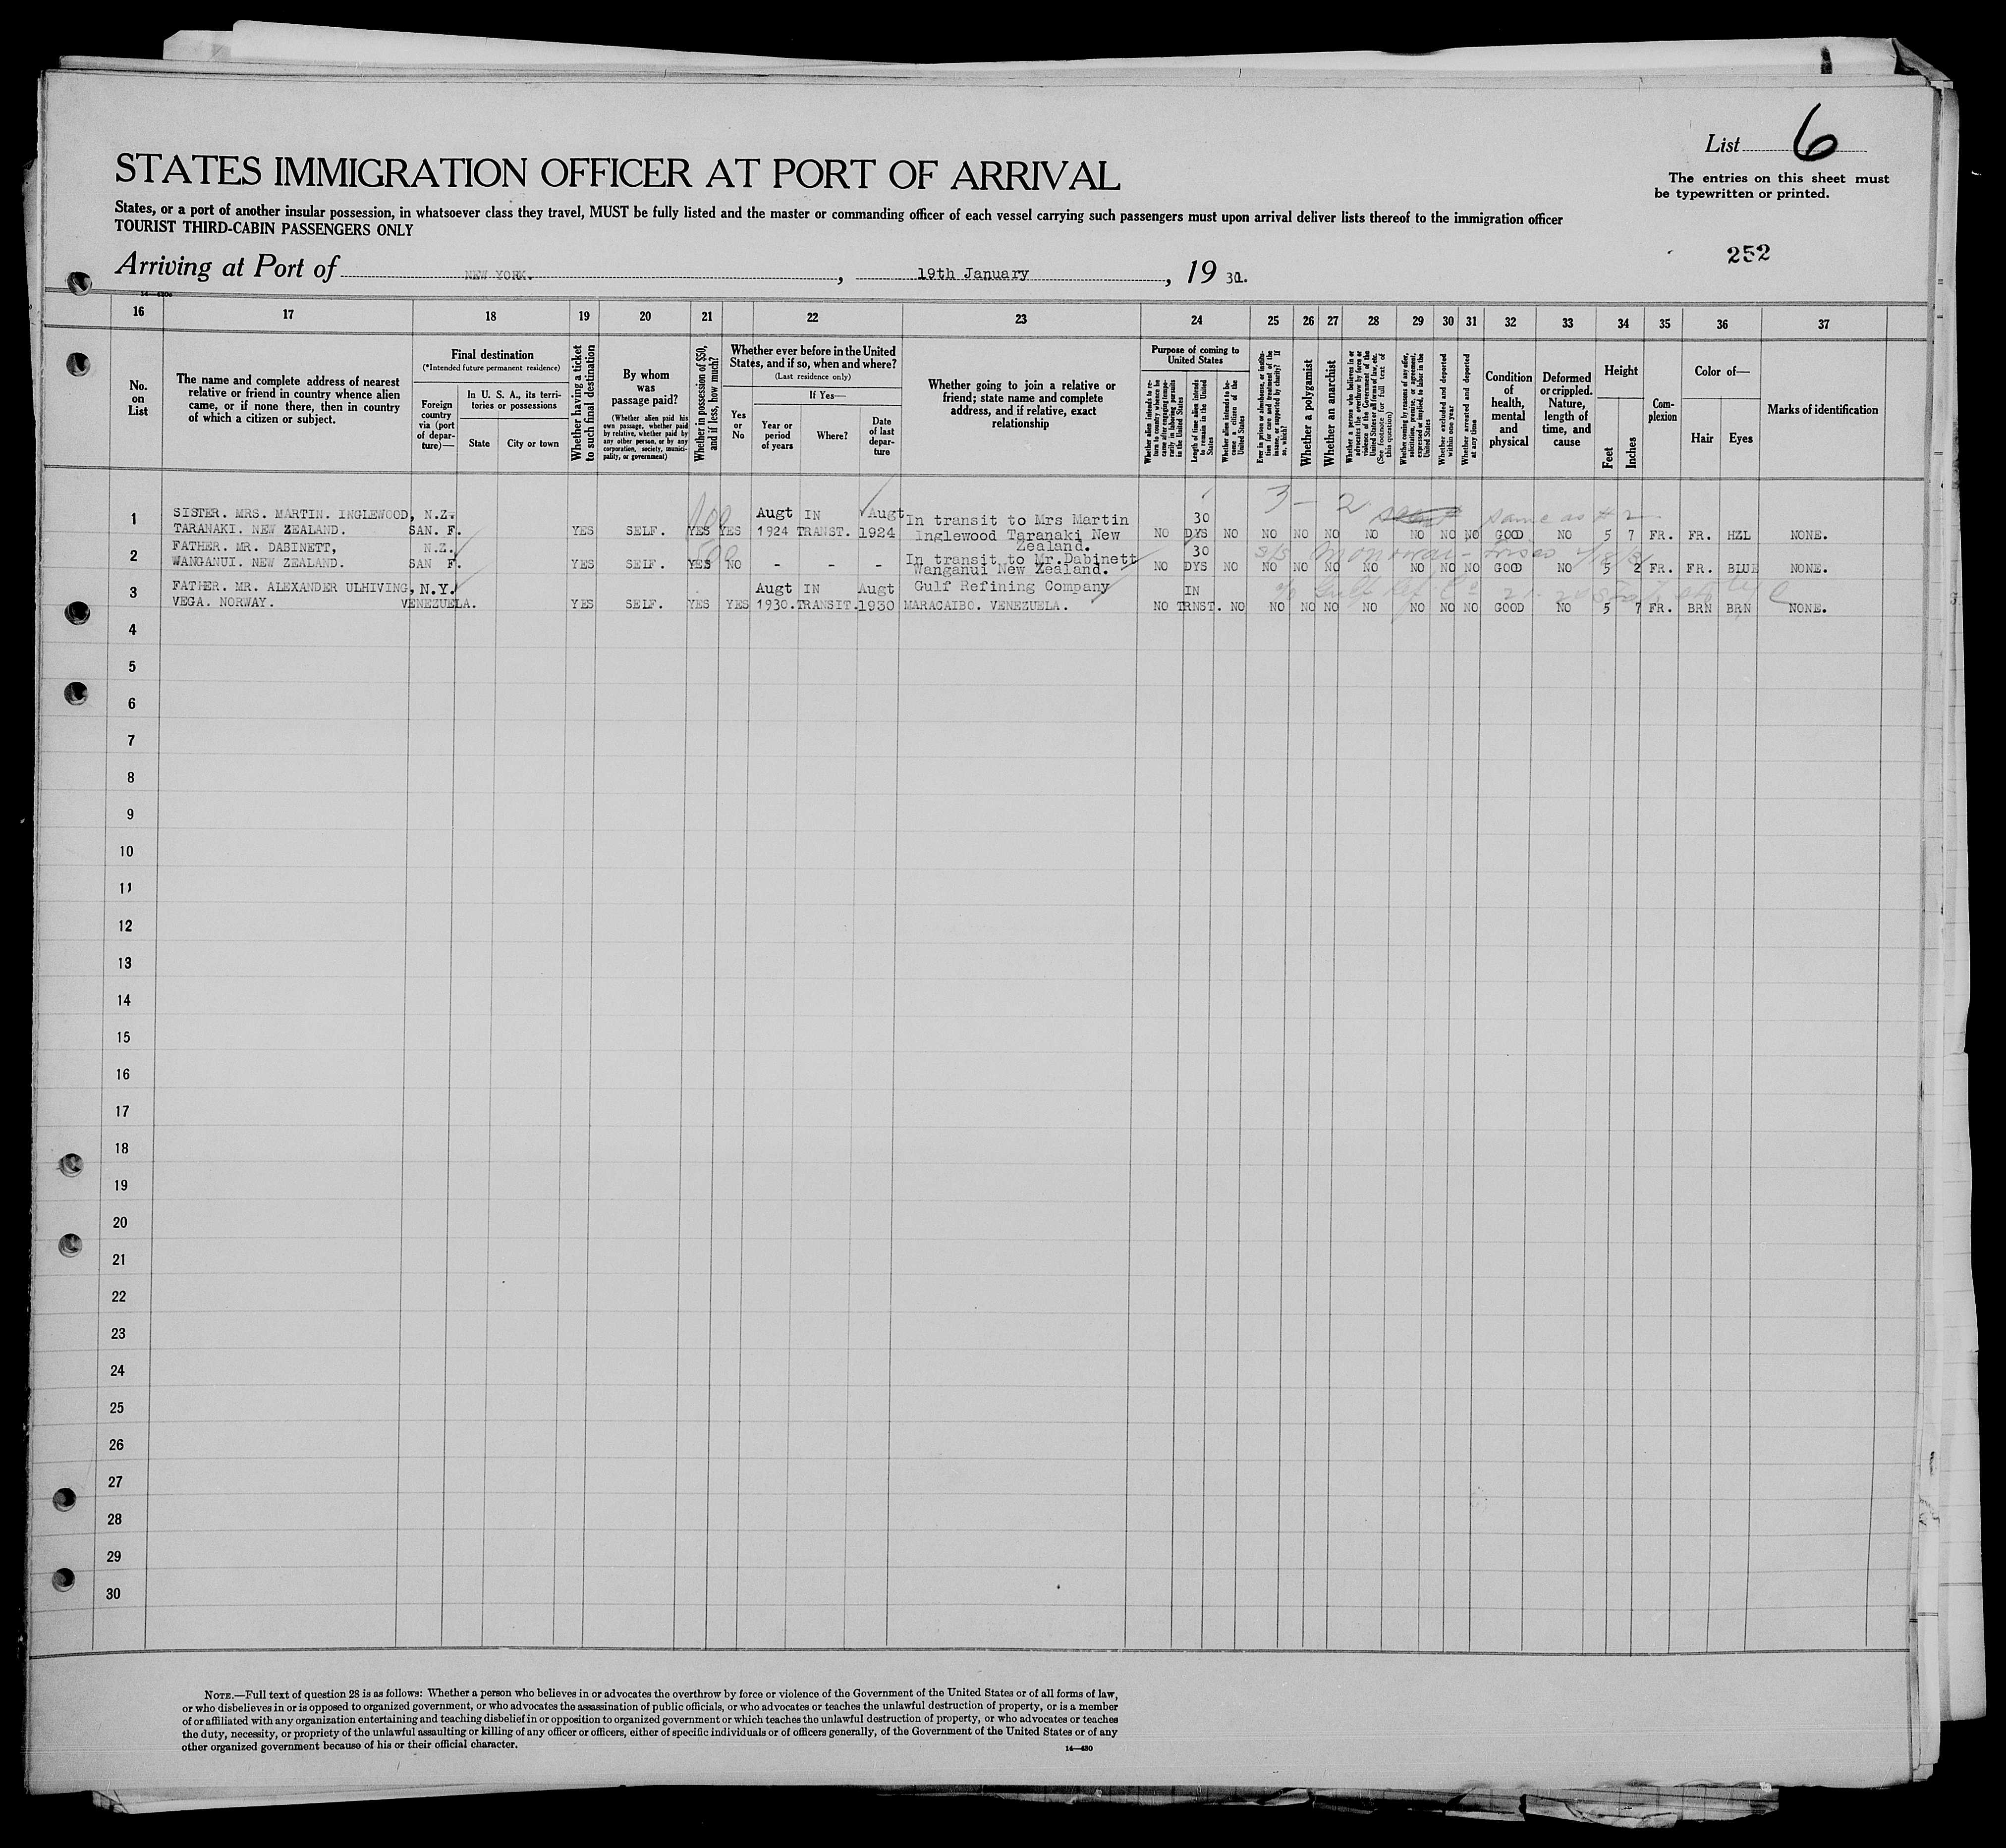 List 6
The entries on this sheet must
be typewritten or printed.
STATES IMMIGRATION OFFICER AT PORT OF ARRIVAL
States, or a port of another insular possession, in whatsoever class they travel, MUST be fully listed and the master or commanding officer of each vessel carrying such passengers must upon arrival deliver lists thereof to the immigration officer
TOURIST THIRD-CABIN PASSENGERS ONLY
252
Arriving at Port of NEW YORK. , 19th January , 19 31.
16 17 18 19 20 21 22 23 24 25 26 27 28 29 30 31 32 33 34 35 36 37
No.
on
List
The name and complete address of nearest
relative or friend in country whence alien
came, or if none there, then in country
of which a citizen or subject.
Final destination
(*Intended future permanent residence)
Foreign
country
via (port
of depar-
ture)—
In U. S. A., its terri-
tories or possessions
State City or town
Whether having a ticket
to such final destination
By whom
was
passage paid?
(Whether alien paid his
own passage, whether paid
by relative, whether paid by
any other person, or by any
corporation, society, munici-
pality, or government)
Whether in possession of $50,
and if less, how much?
Whether ever before in the United
States, and if so, when and where?
(Last residence only)
Yes
or
No
If Yes—
Year or
period
of years
Where?
Date
of last
depar-
ture
Whether going to join a relative or
friend; state name and complete
address, and if relative, exact
relationship
Purpose of coming to
United States
Whether alien intends to re-
turn to country whence he
came after engaging tempo-
rarily in laboring pursuits
in the United States
Length of time alien intends
to remain in the United
States
Whether alien intends to be-
come a citizen of the
United States
Ever in prison or almshouse, or institu-
tion for care and treatment of the
insane, or supported by charity? If
so, which?
Whether a polygamist
Whether an anarchist
Whether a person who believes in or
advocates the overthrow by force or
violence of the Government of the
United States or all forms of law, etc.
(See footnote for full text of
this question)
Whether coming by reasons of any offer,
solicitation, promise, or agreement,
expressed or implied, to labor in the
United States
Whether excluded and deported
within one year
Whether arrested and deported
at any time
Condition
of
health,
mental
and
physical
Deformed
or crippled.
Nature,
length of
time, and
cause
Height
Feet
Inches
Com-
plexion
Color of—
Hair Eyes
Marks of identification
3 - 2 same as # 2
1 SISTER. MRS. MARTIN. INGLEWOOD, N.Z. Augt IN Augt In transit to Mrs Martin 30
TARANAKI. NEW ZEALAND. SAN. F. YES SELF. YES YES 1924 TRANST. 1924 Inglewood Taranaki New NO DYS NO NO NO NO NO NO NO NO GOOD NO 5 7 FR. FR. HZL NONE.
Zealand.
2 FATHER. MR. DABINETT, N.Z. In transit to Mr.Dabinett 30
WANGANUI. NEW ZEALAND. SAN F. YES SELF. YES NO - - - Wanganui New Zealand. NO DYS NO NO NO NO NO NO NO NO GOOD NO 5 2 FR. FR. BLUE NONE.
3 FATHER. MR. ALEXANDER ULHIVING, N.Y. Augt IN Augt Gulf Refining Company IN
VEGA. NORWAY. VENEZUELA. YES SELF. YES YES 1930. TRANSIT. 1930 MARACAIBO. VENEZUELA. NO TRNST. NO NO NO NO NO NO NO NO GOOD NO 5 7 FR. BRN BRN NONE.
4
5
6
7
8
9
10
11
12
13
14
15
16
17
18
19
20
21
22
23
24
25
26
27
28
29
30
NOTE.—Full text of question 28 is as follows: Whether a person who believes in or advocates the overthrow by force or violence of the Government of the United States or of all forms of law,
or who disbelieves in or is opposed to organized government, or who advocates the assassination of public officials, or who advocates or teaches the unlawful destruction of property, or is a member
of or affiliated with any organization entertaining and teaching disbelief in or opposition to organized government or which teaches the unlawful destruction of property, or who advocates or teaches
the duty, necessity, or propriety of the unlawful assaulting or killing of any officer or officers, either of specific individuals or of officers generally, of the Government of the United States or of any
other organized government because of his or their official character.
14—430